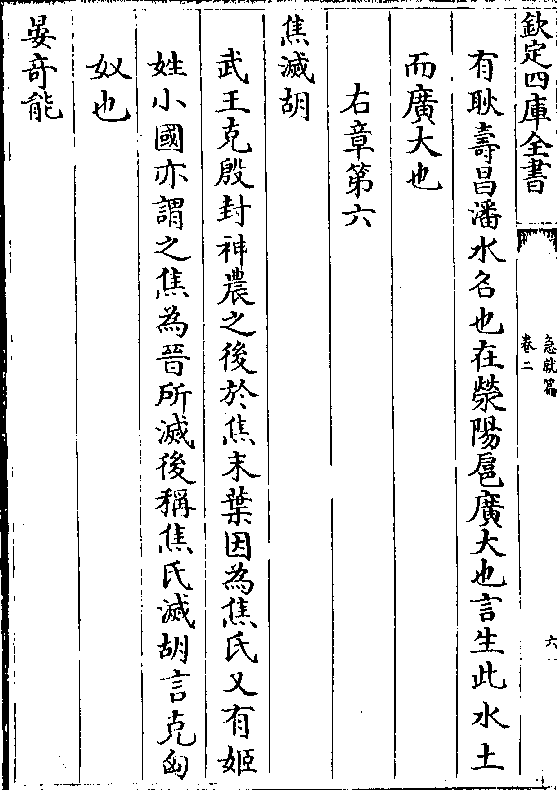 欽定四庫全書
急就篇
卷二
六
有耿壽昌潘水名也在滎陽扈廣大也言生此水土
而廣大也
右章第六
焦滅胡
武王克殷封神農之後於焦末葉因為焦氏又有姬
姓小國亦謂之焦為晉所滅後稱焦氏滅胡言克匈
奴也
晏奇能